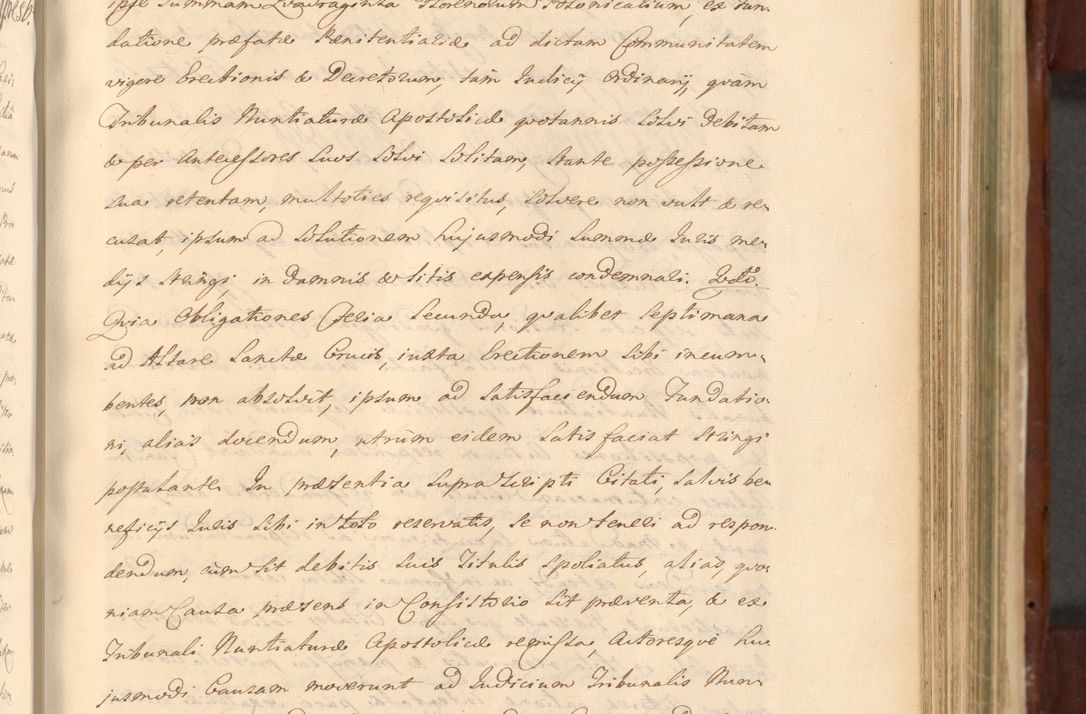 ipse Summam Quadraginta Florenorum Polonicalium, ex Fun-
datione præfatæ Pænitentiariæ ad dictam Communitatem
vigore Erectionis & Decretorum, tàm Iudicij Ordinarij, quam
Tribunalis Nuntiaturæ Apostolicæ quotannis Solvi debitam
& per Antecessores Suos Solvi Solitam, Stante possessione
Sua retentam, multoties requisitus, Solvere non vult & re-
cusat, ipsum ad Solutionem hujusmodi Summæ Iuris me-
dijs stringi, in Damnis & litis expensis condemnari.
Quia Obligationes Feria Secunda, qualibet Septimana
ad Altare Sanctæ Crucis, iuxta Erectionem Sibi incum-
bentes, non absolvit, ipsum ad Satisfaciendum Fundatio-
ni, alias docendum, utrùm eidem Satisfaciat stringi
postulante. In præsentia Suprascripti Citati, Salvis be-
neficijs Iuris Sibi in toto reservatis, Se non teneri ad respon-
dendum, cùm Sit debitis Suis Titulis Spoliatus, alias, quo-
niam Causa præsens in Consistorio Sit præventa, & ex
Tribunali Nuntiaturæ Apostolicæ remissa, Actoresque hu-
jusmodi Causam moverunt ad Iudicium Tribunalis Nun-